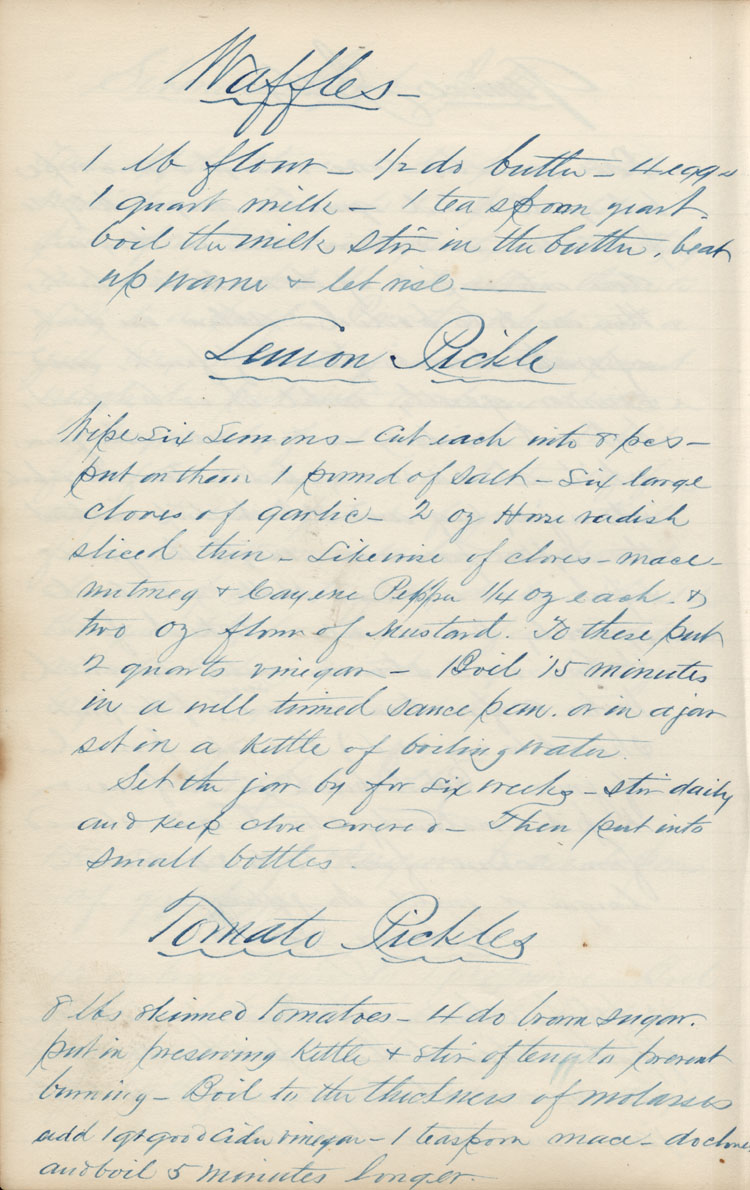 Waffles -
1 lb flour - 1/2 do butter - 4 eggs
1 quart milk - 1 tea spoon yeast.
boil the milk stir in the butter. beat
up warm & let rise -
Lemon Pickle
Wipe six Lemons - Cut each into 8 pcs -
put on them 1 pound of Salt - Six large
cloves of garlic - 2 oz Horse radish
sliced thin - Likewise of cloves - mace -
nutmeg & Cayene Pepper 1/4 oz each. &
two oz flour of Mustard. To these put
2 quarts vinegar - Boil 15 minutes
in a well tinned sauce pan. or in a jar
set in a kettle of boiling water.
Set the jar by for six weeks - stir daily
and keep close covered - Then put into
small bottles.
Tomato Pickles
8 lbs skinned tomatoes - 4 do brown sugar.
put in preserving Kettle & stir often to prevent
burning - Boil to the thickness of molasses
add 1 qt good Cider vinegar - 1 teaspoon mace - do cloves
and boil 5 minutes longer.